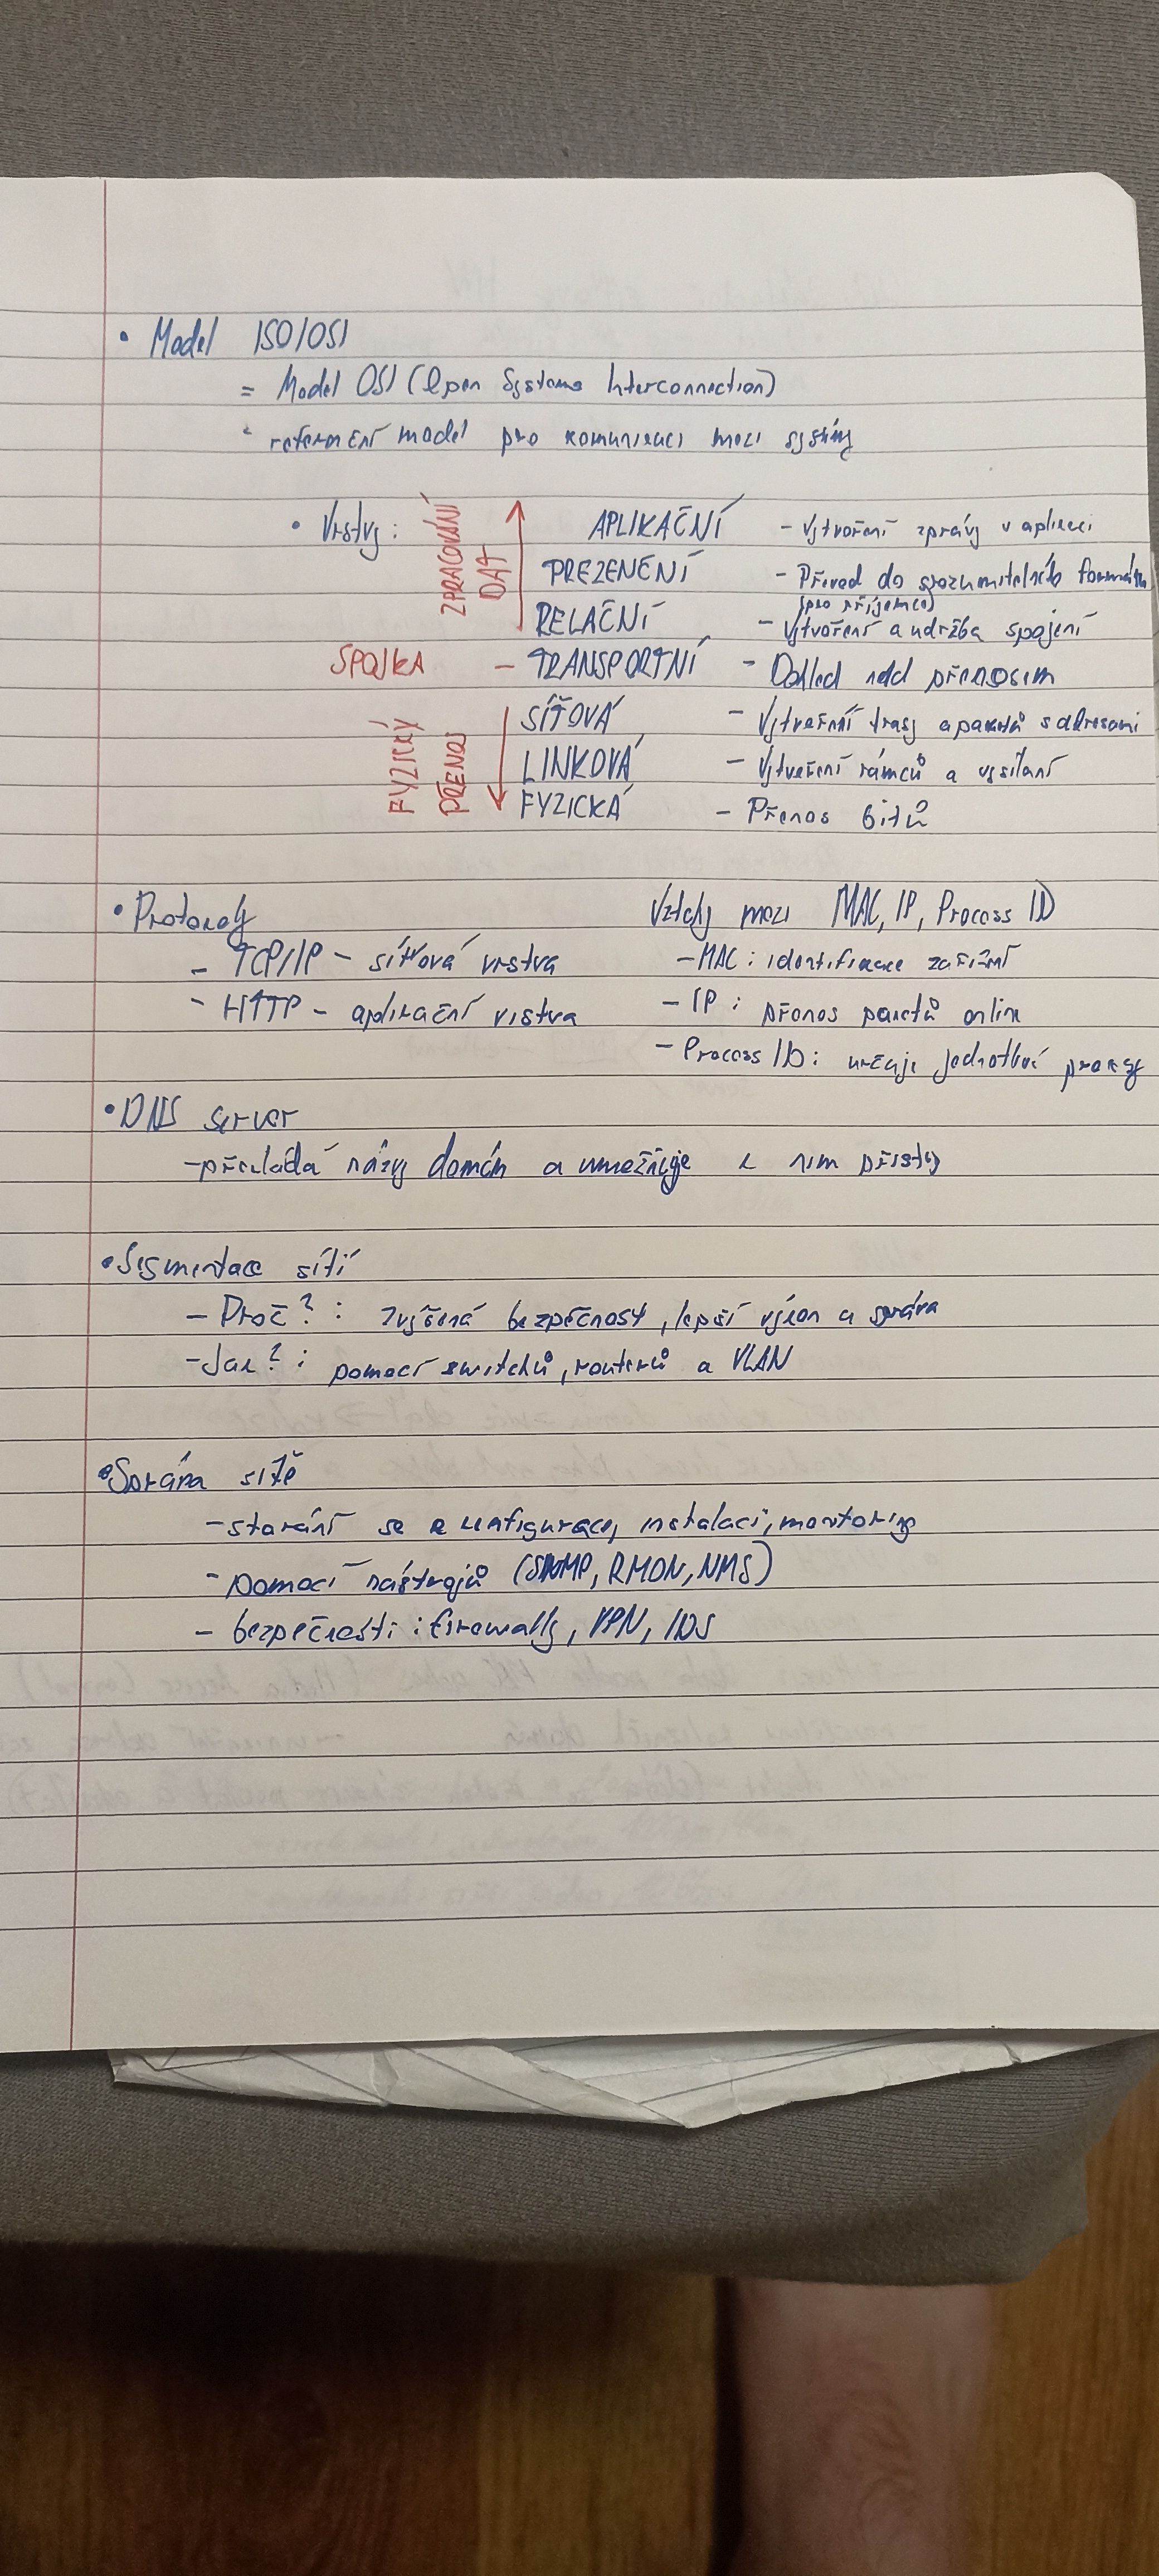 • Model ISO/OSI
= Model OSI (Open Systems Interconnection)
- referenční model pro komunikaci mezi systémy
• Vrstvy:
ZPRACOVÁNÍ DAT
APLIKAČNÍ - Vytvoření zprávy v aplikaci
PREZENČNÍ - Převod do srozumitelného formátu
(pro příjemce)
RELAČNÍ - Vytvoření a udržba spojení
SPOJKA - TRANSPORTNÍ - Dohled nad přenosem
FYZICKÝ PŘENOS
SÍŤOVÁ - Vytvoření trasy a paketů s adresami
LINKOVÁ - Vytvoření rámců a vysílaní
FYZICKÁ - Přenos bitů
• Protokoly
- TCP/IP - síťová vrstva
- HTTP - aplikační vrstva
Vztahy mezi MAC, IP, Process ID
- MAC: identifikace zařízení
- IP: přenos paketů online
- Process ID: určuje jednotlivé procesy
• DNS server
- překládá názvy domén a umožňuje k nim přístup
• Segmentace sítí
- Proč?: zvýšená bezpečnost, lepší výkon a správa
- Jak?: pomocí switchů, routerů a VLAN
• Správa sítě
- starání se o konfiguraci, instalaci, monitoring
- pomocí nástrojů (SNMP, RMON, NMS)
- bezpečnosti: firewally, VPN, IDS